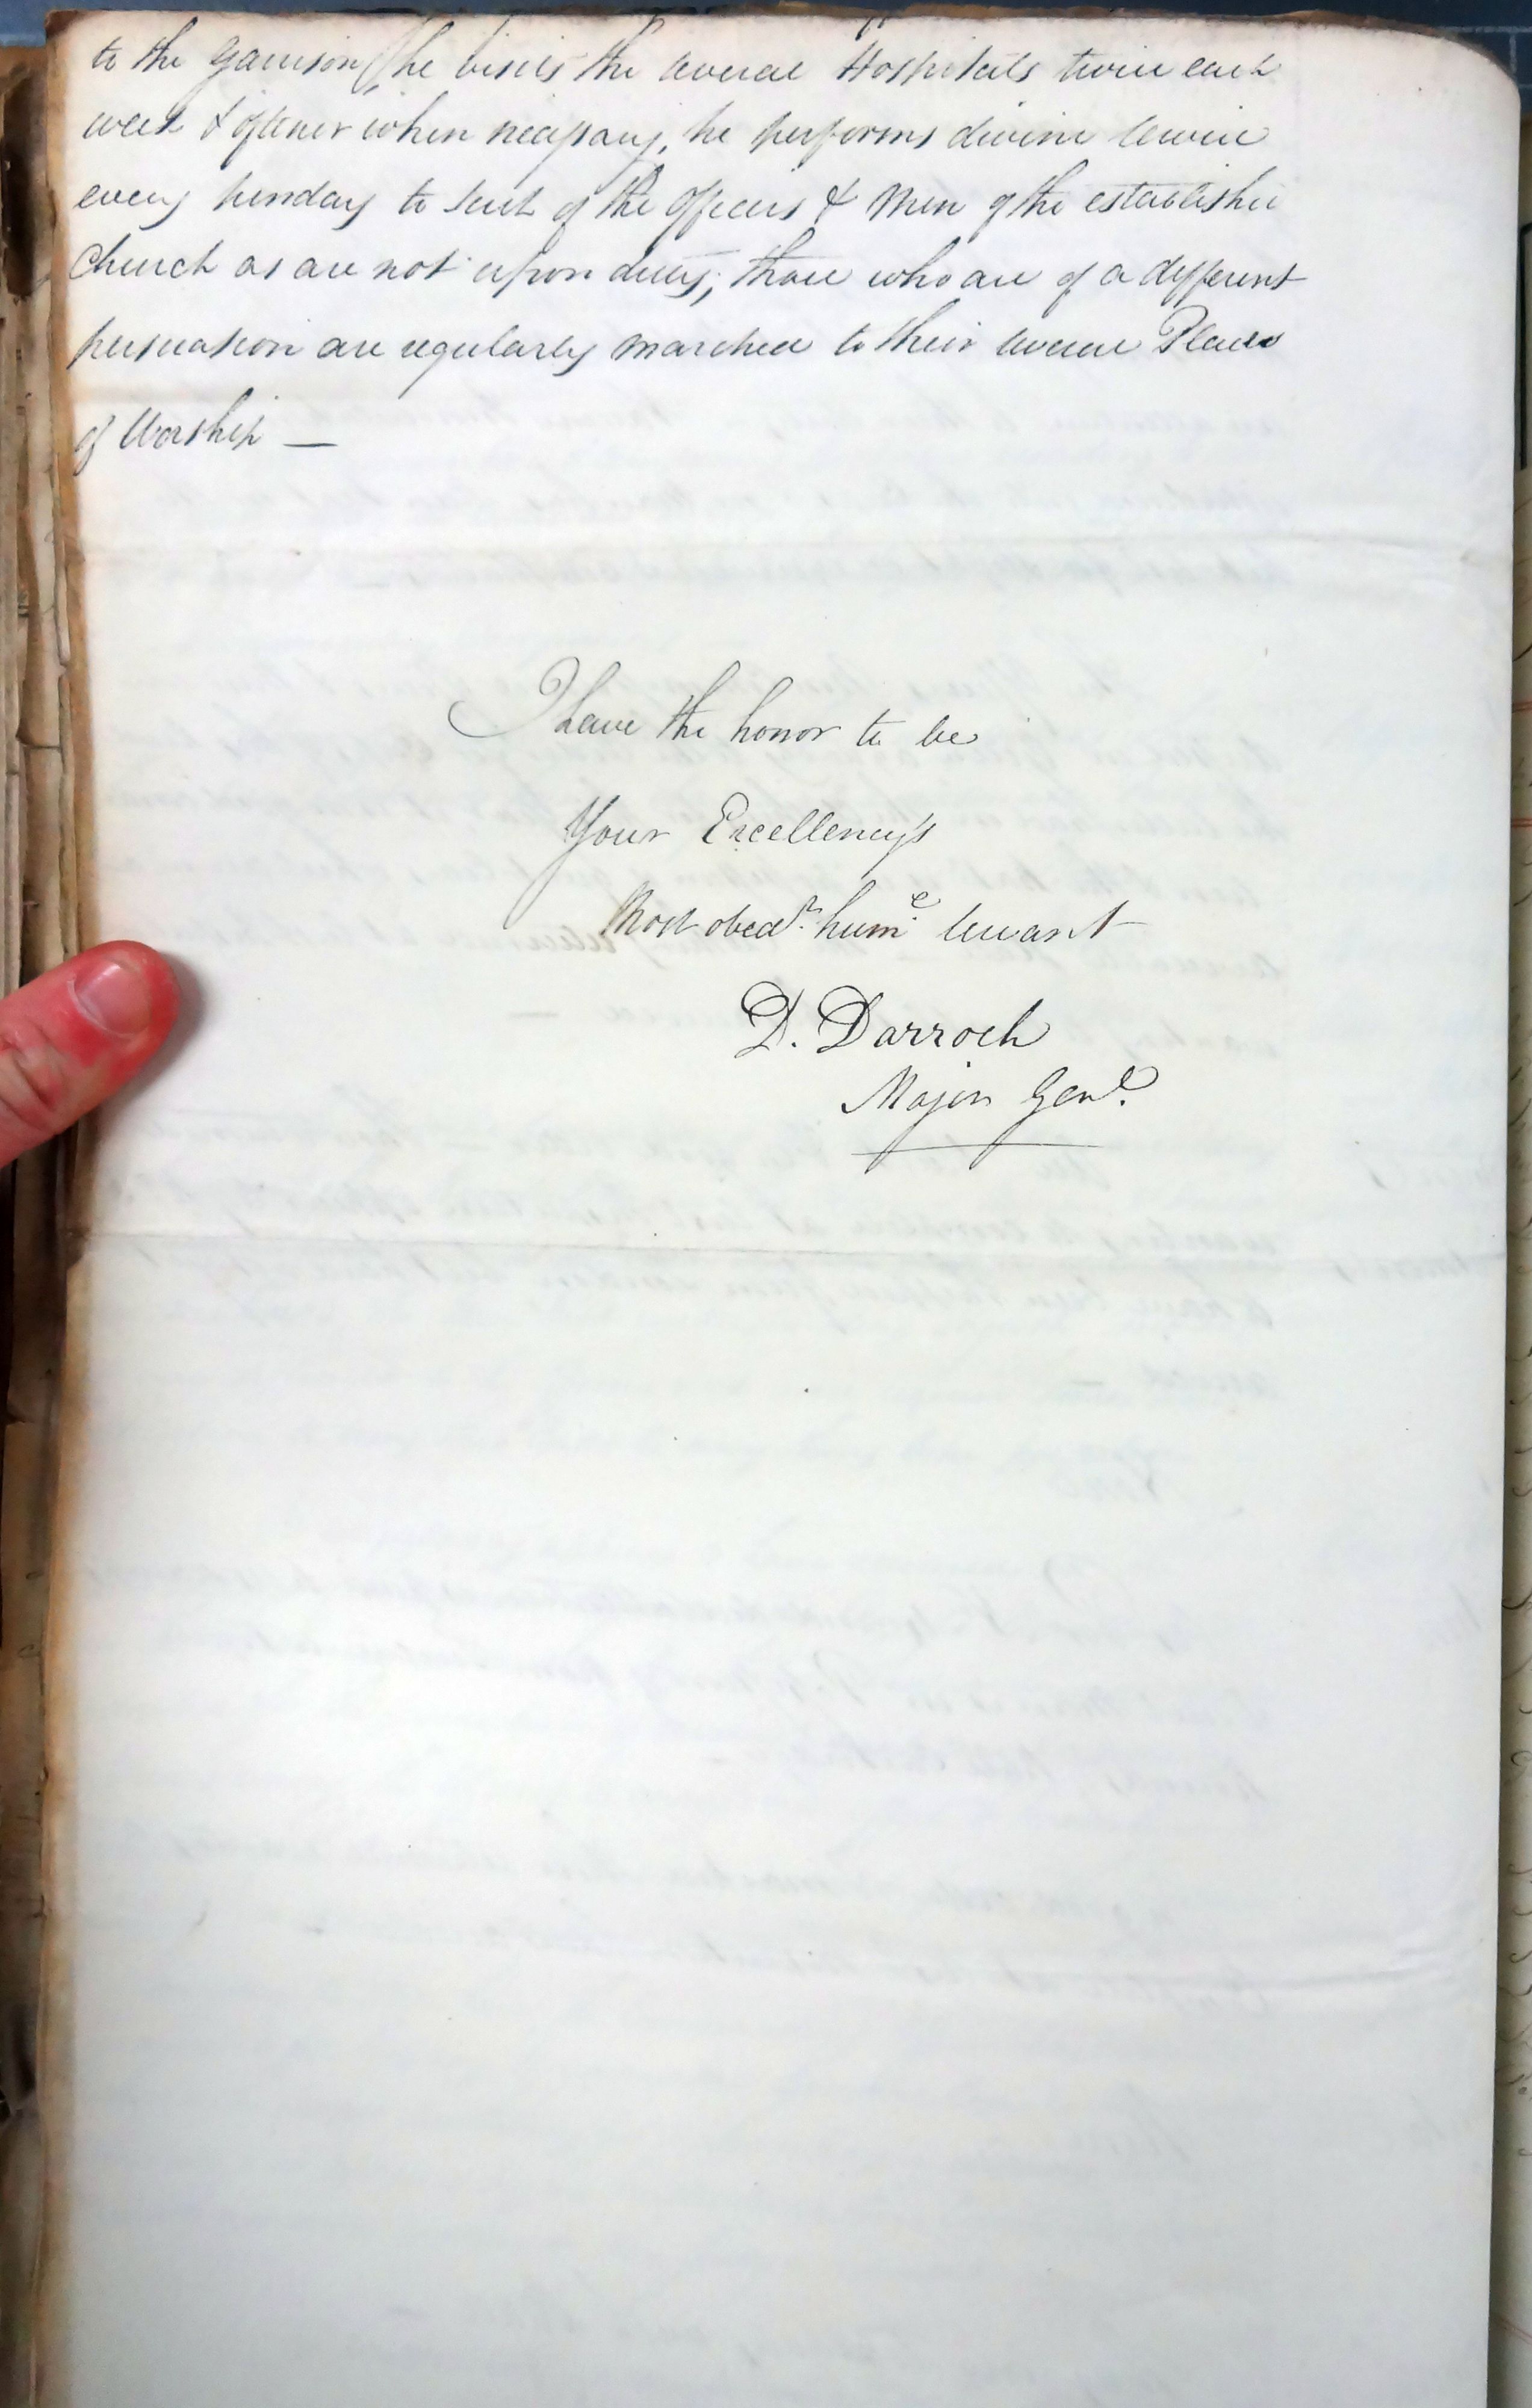 to the Garrison, he visits the several Hospitals twice each
week & oftener when necessary, he performs divine service
every Sunday to such of the Officers & Men of the established
Church as are not upon duty; those who are of a different
persuasion are regularly marched to their several Places
of Worship —
I have the honor to be
Your Excellency's
Most obedt. hume. servant
D. Darroch
Major Genl.